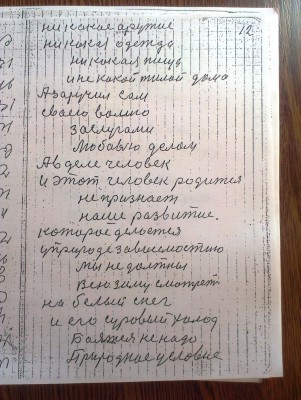 12
никакое аружие
никакая одежда
никакая пищь
и не какой тилой дома
А заручил сам
сваею волию
заслугами
Любавию делам
А в деле человек
И этот человек родится
не признает
наше развитие.
каторое делается
у природе зависимостию
мы не долтны
Всю зиму смотреть
на белый снег
и его суровый холод
Баяжся не надо
Природное условие